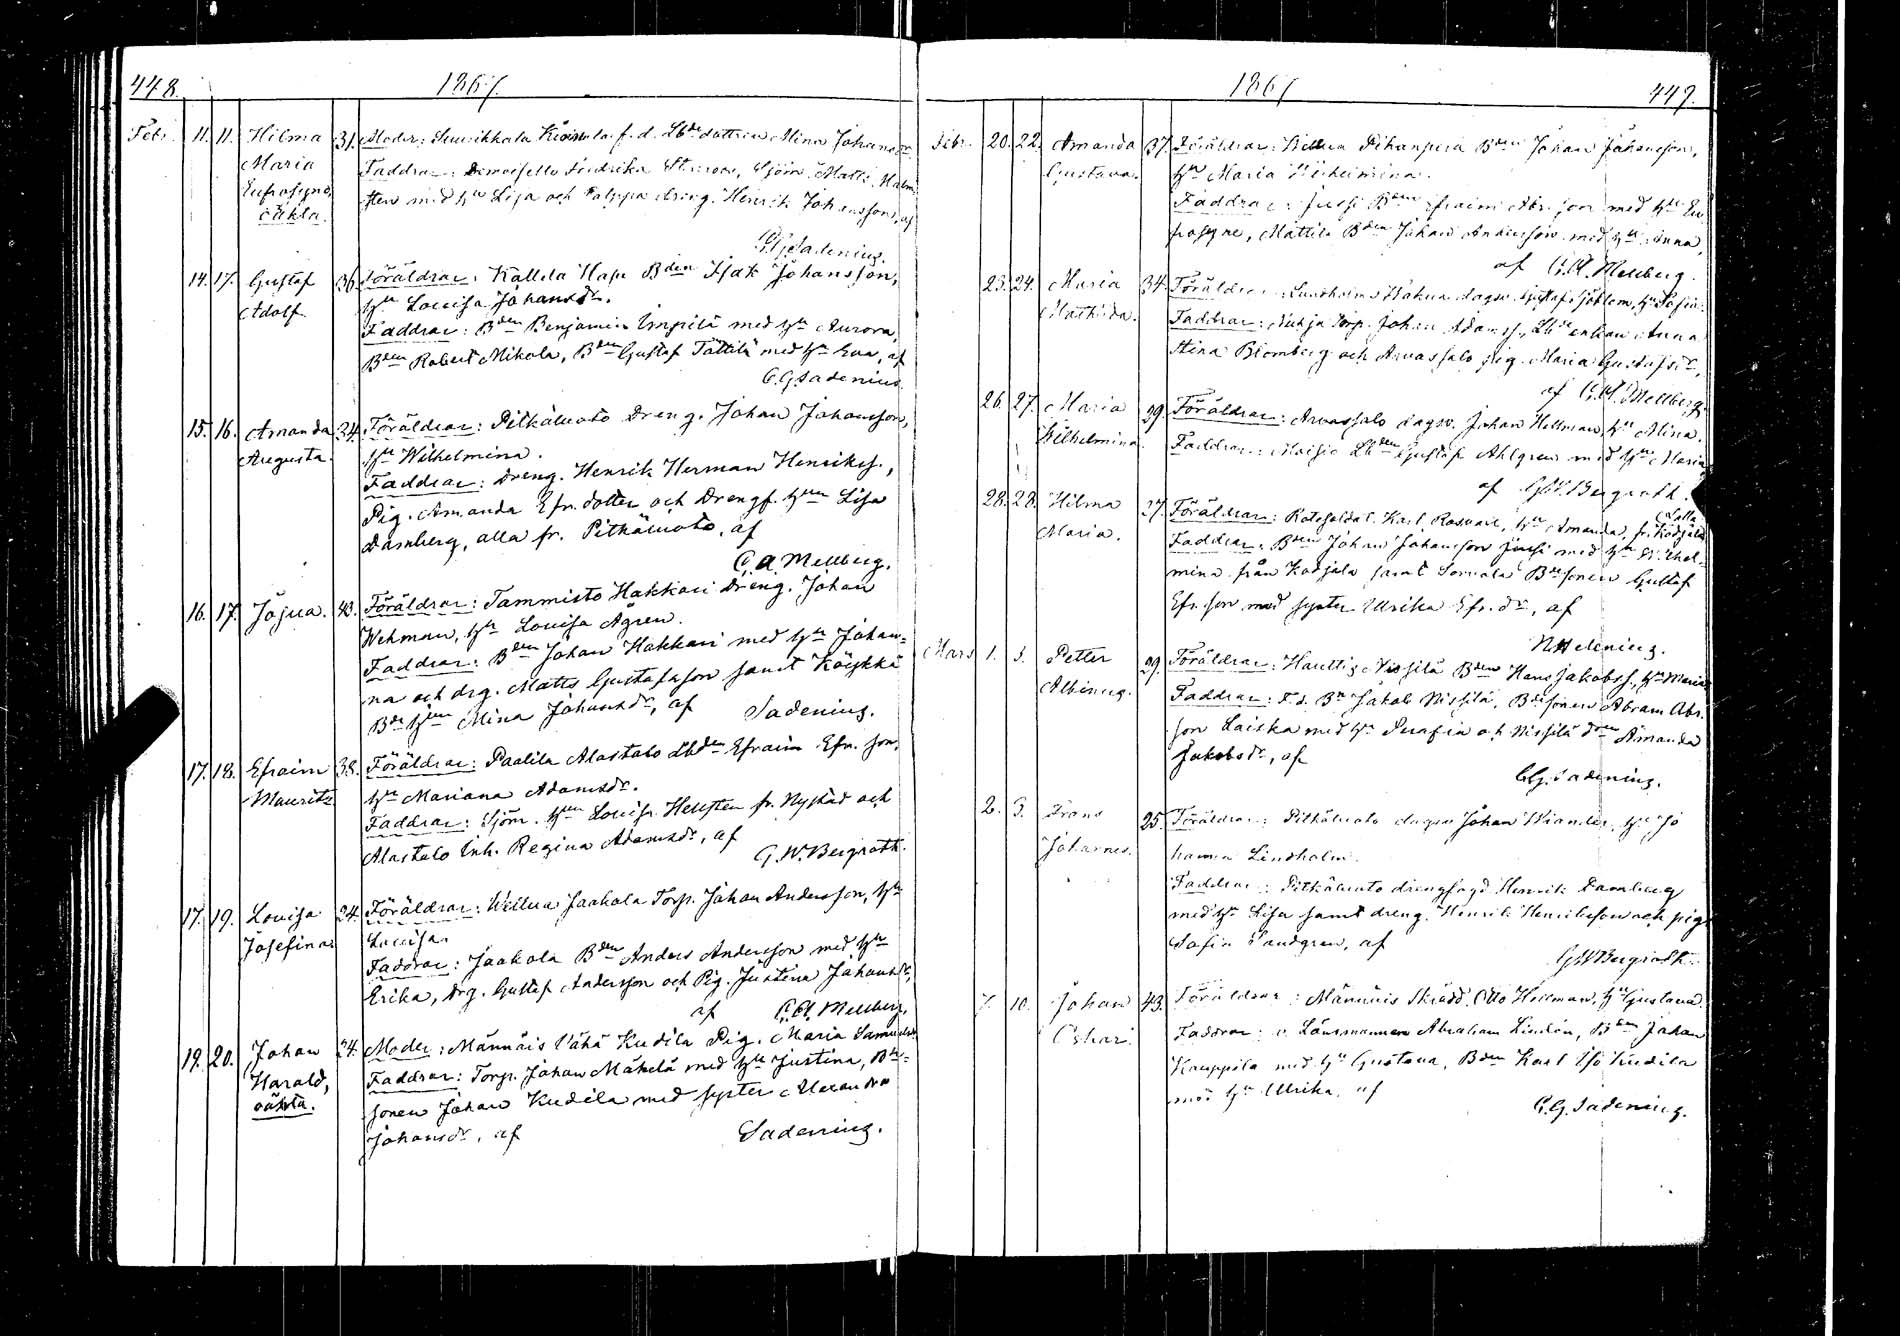 448. 1867.
Febr. 11. 11. Hilma 31. Moder: f. d. Lbde dottren Mina Johansdr
Maria Faddrar: Demoiselle Fredrika Sjöm. Matts Halm-
Eufrosyne, sten med hu Lisa och drg. Henrik Johansson, af
oäkta. Sadenius.
14. 17. Gustaf 36. Föräldrar: Kallela Hape Bden Isak Johansson,
Adolf. hu Lovisa Johansdr.
Faddrar: Bden Benjamin Impilä med hu Aurora,
Bden Robert Mikola, Bden Gustaf Tättilä med hu Eva, af
C.G. Sadenius
15. 16. Amanda 34. Föräldrar: Pitkäluoto Dreng. Johan Johansson,
Augusta. hu Wilhelmina.
Faddrar: Dreng. Henrik Herman Henrikss.,
Pig. Amanda Efr. dotter och Drengf. hun Lisa
Damberg, alla fr. Pitkäluoto, af
C. A Mellberg.
16. 17. Josua. 43. Föräldrar: Tammisto Hakkari Dreng. Johan
Wekman, hu Lovisa Ågren.
Faddrar: Bden Johan Hakkari med hu Johan-
na och drg. Matts Gustafsson samt Köykkä
Bde hun Mina Johansdr, af Sadenius.
17. 18. Efraim 38. Föräldrar: Paalila Alastalo Lbden Efraim Efr. son,
Mauritz hu Mariana Adamsdr.
Faddrar: Sjöm. hun Lovisa Hellsten fr. Nystad och
Alastalo Inh. Regina Adamsdr, af
G. W. Bergroth.
17. 19. Lovisa 24. Föräldrar: Wellua Jaakola Torp. Johan Andersson, hu
Josefina Lovisa
Faddrar: Jaakola Bden Anders Andersson med hu
Erika, Drg. Gustaf Andersson och Pig. Justina Johansdr,
af C. A. Mellberg.
19. 20. Johan 24. Moder: Männäis Vähä Kudila Pig. Maria Samuelsdr
Harald, Faddrar: Torp. Johan Mäkelä med hu Justina, Bde-
oäkta. sonen Johan Kudila med syster Alexandra
Johansdr, af Sadenius.
1867 449.
Febr. 20. 22. Amanda 37. Föräldrar: Wellua Pihanperä Bden Johan Johansson,
Gustava. hu Maria Wilhelmina.
Faddrar: Jussi Bden Efraim Abr. son med hu Eu-
frosyne, Mattila Bden Johan Andersson med hu Anna,
af C. A. Mellberg.
23. 24. Maria 34. Föräldrar: Lundholms Wakua dagsv. Gustaf Sjöblom, hu Sofia.
Mathilda. Faddrar: Torp. Johan Adamss., Lbde enkan Anna
Stina Blomberg och Arvassalo pig. Maria Gustafsdr,
af C. A. Mellberg.
26. 27. Maria 29. Föräldrar: Arvassalo dagsv. Johan Hellman, hu Mina.
Wilhelmina. Faddrar: Moisio Lbden Gustaf Ahlgren med hu Maria
af GW. Bergroth.
28. 28. Hilma 37. Föräldrar: Rotesoldat. Karl Rosvall, hu Amanda, fr. Kodjala
Maria. Faddrar: Bden Johan Johansson Jussi med hu Wilhel-
mina från Kodjala samt Sorvala Bdesonen Gustaf
Efr. son med syster Ulrika Efr. dr, af
N Helenius.
Mars 1. 3. Petter 29. Föräldrar: Hauttis Nissilä Bden Hans Jakobss., hu Maria
Albinus. Faddrar: F. d. Bn Jakob Nissilä, Bdesonen Abram Abr.
son Laiska med hu Serafia och Nissilä Dren Amanda
Jakobsdr, af
C.G. Sadenius.
2. 3. Frans 25. Föräldrar: Pitkäluoto dagsv Johan Wiander, hu Jo
Johannes. hanna Lindholm.
Faddrar: Pitkäluoto drengfogd Henrik Damberg
med hu Lisa samt dreng. Henrik Henriksson och pig
Sofia Sandgren, af
GWBergroth.
7. 10. Johan 43. Föräldrar: Männäis Skrädd. Otto Hellman, hu Gustava.
Oskar. Faddrar: v. Länsmannen Abraham Lindén, Bden Johan
Kauppila med hu Gustava, Bden Karl Iso Kudila
med hu Ulrika, af
C. G. Sadenius.